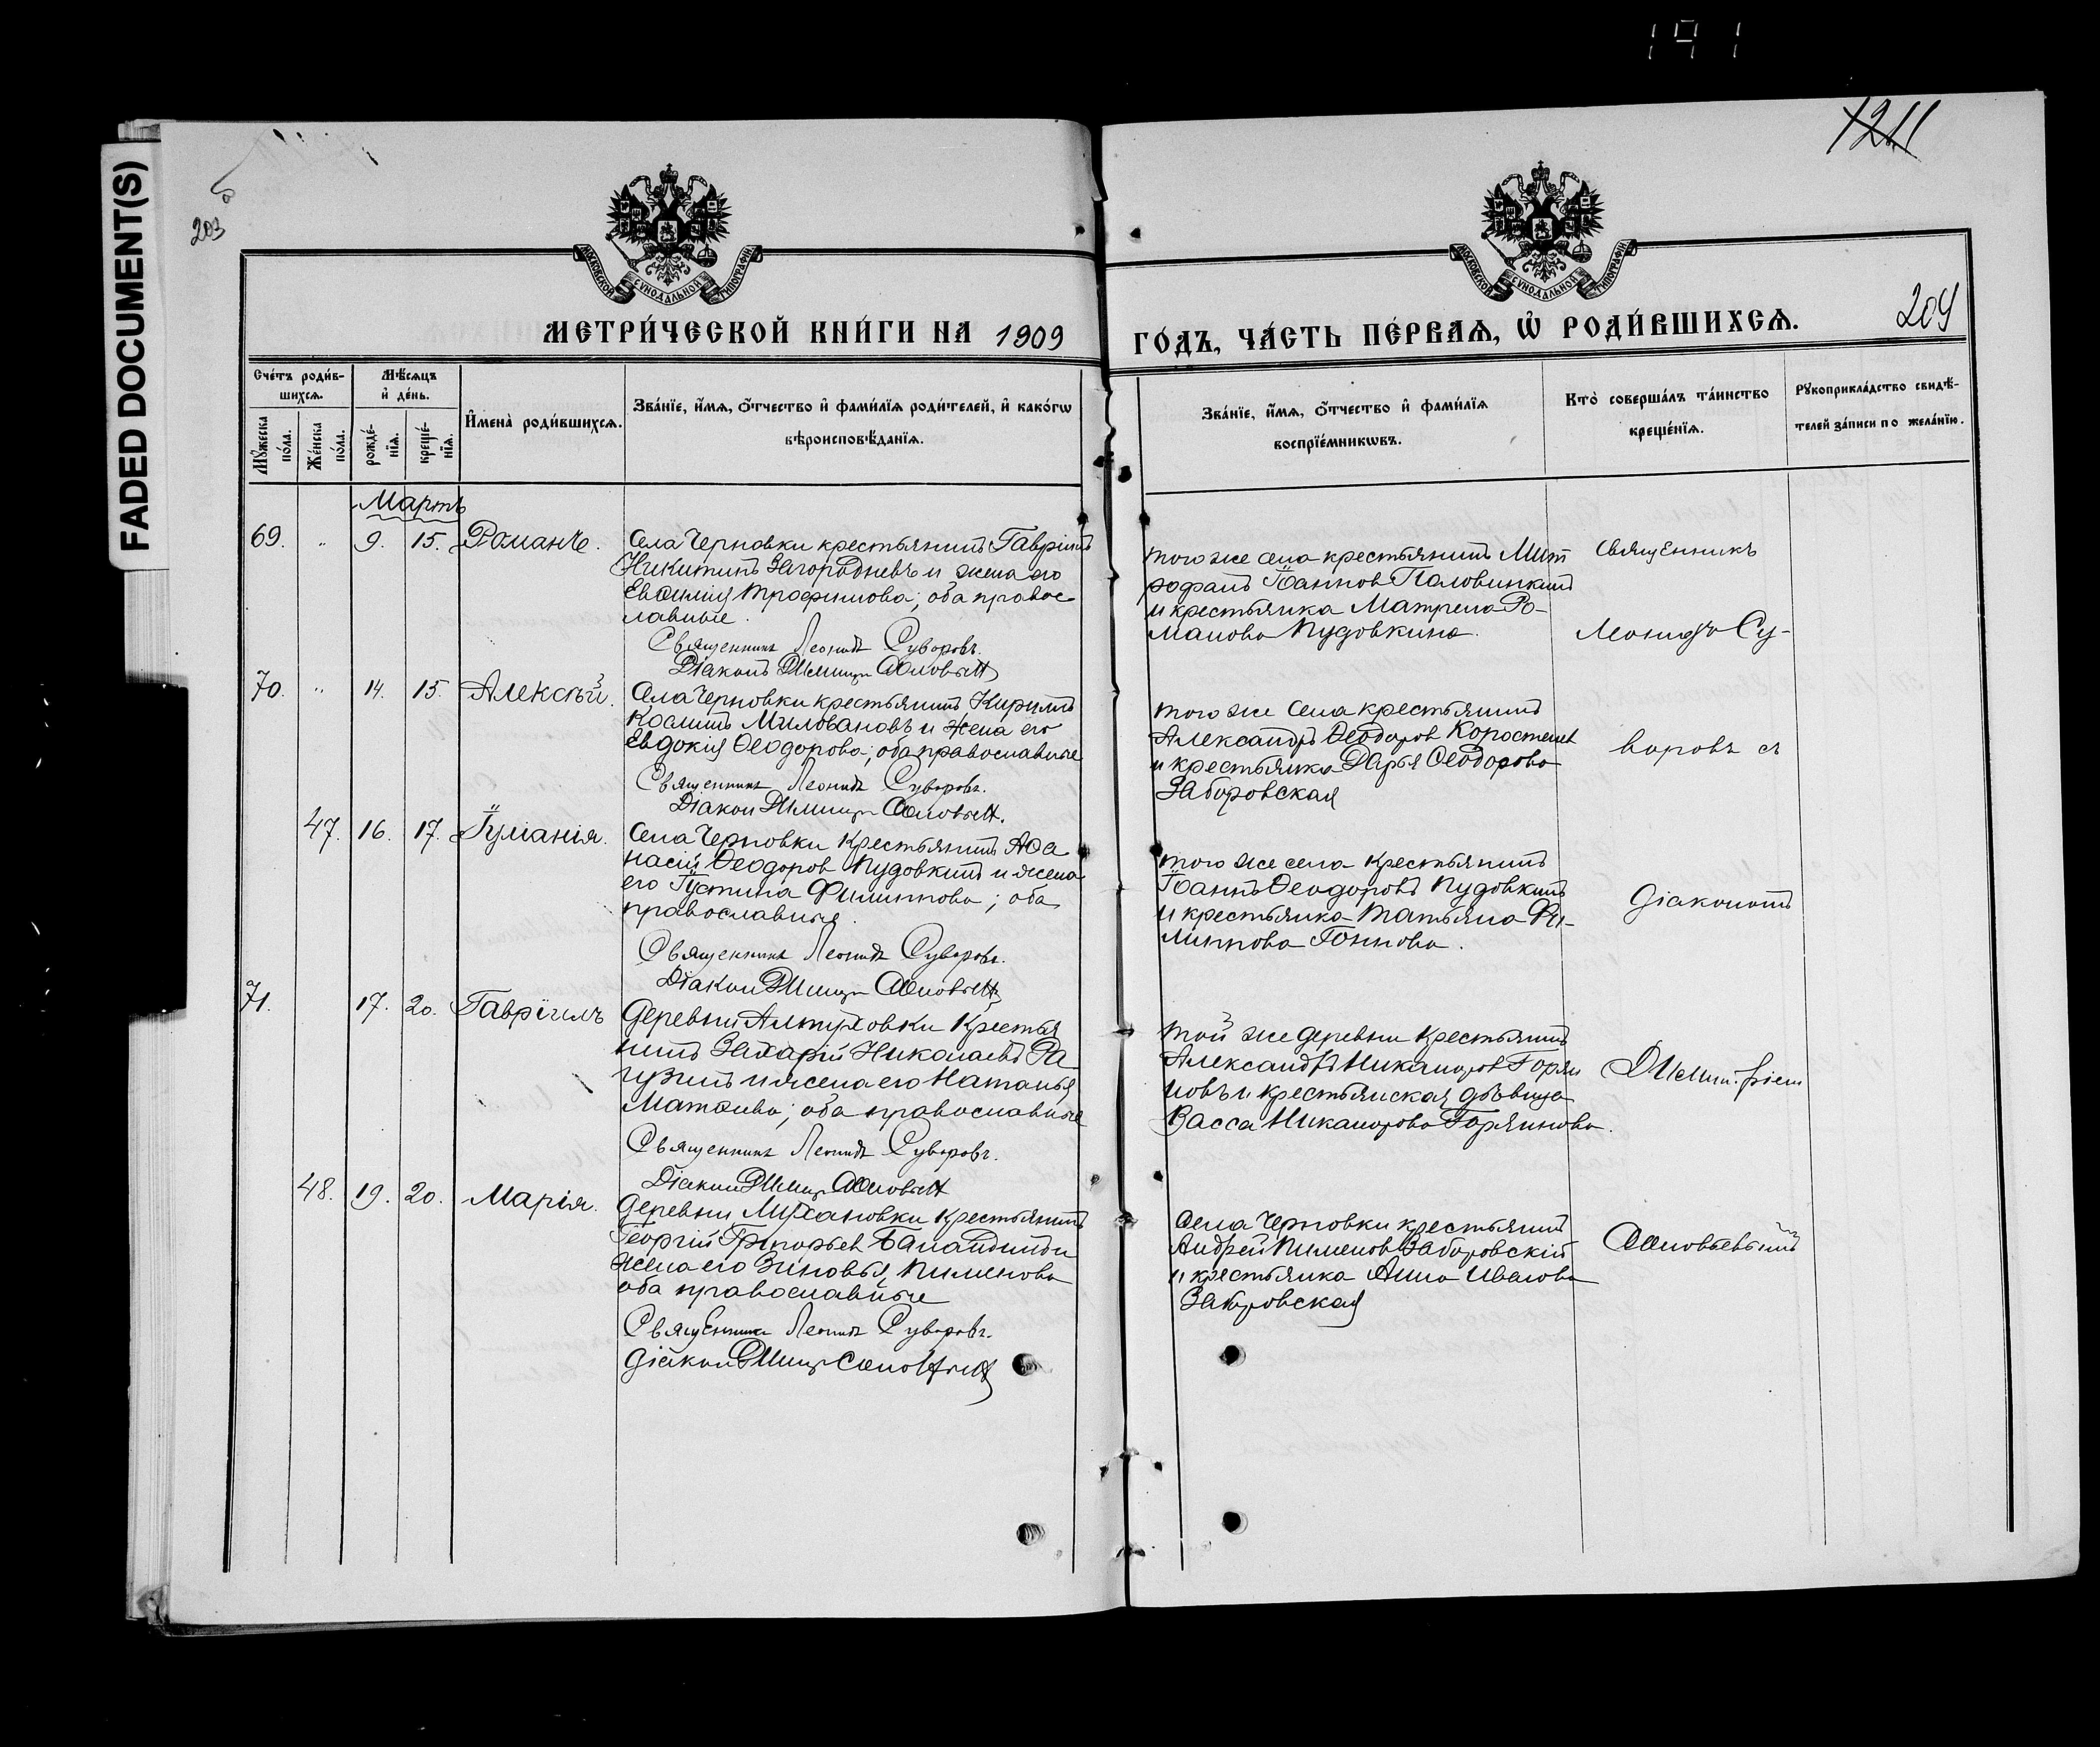 FADED DOCUMENT(S)
191
1211
203
МОСКОВСКОЙ СѴНОДАЛЬНОЙ ТИПОГРАФІИ
МОСКОВСКОЙ СѴНОДАЛЬНОЙ ТИПОГРАФІИ
МЕТРИ́ЧЕСКОЙ КНИ́ГИ НА 1909
ГО́ДЪ, ЧА́СТЬ ПЕ́РВАѦ, Ѡ҆ РОДИ́ВШИХСѦ.
204
Сче́тъ роди́в-
шихсѧ.
Мѣ́сѧцъ
и҆ де́нь.
Мꙋ́жеска
по́ла.
Же́нска
по́ла.
рожде́-
нїѧ.
креще́-
нїѧ.
И҆мена̀ роди́вшихсѧ.
Зва́нїе, и҆́мѧ, ѻ҆́тчество и҆ фами́лїѧ роди́телей, и҆ како́гѡ
вѣроисповѣ́данїѧ.
Зва́нїе, и҆́мѧ, ѻ҆́тчество и҆ фами́лїѧ
воспрїе́мникѡвъ.
Кто̀ соверша́лъ та́инство
креще́нїѧ.
Рꙋкоприкла́дство свидѣ́-
телей за́писи по жела́нїю.
Мартъ
69. " 9. 15. Романъ.
Села Черновки крестьянинъ Гавріилъ
Никитинъ Загородневъ и жена его
Евѳимія Трофимова; оба право-
славные.
Священникъ Леонидъ Суворовъ.
Діаконъ Димитр
того же села крестьянинъ Мит
рофанъ Іоаннов Половинкинъ
и крестьянка Матрена Ро-
манова Пудовкина.
Священникъ
Леонидъ Су-
70. " 14. 15. Алексѣй.
Села Черновки крестьянинъ Кириллъ
Косминъ Миловановъ и жена его
Евдокія Ѳеодорова; оба православные
Священникъ Леонидъ Суворовъ.
Діакон Димитр
того же села крестьянинъ
Александръ Ѳеодоров Коростелев
и крестьянка Дарья Ѳеодорова
Заборовская
воровъ съ
47. 16. 17. Іуліанія.
Села Черновки крестьянинъ Аѳа
насій Ѳеодоров Пудовкинъ и жена
его Іустина Филиппова; оба
православные
Священникъ Леонидъ Суворовъ.
Діакон Димитр
того же села крестьянинъ
Іоаннъ Ѳеодоровъ Пудовкинъ
и крестьянка Татьяна Фи-
липпова
Діакономъ
71. 17. 20. Гавріилъ
Деревни Алтуховки крестья
нинъ Захарій Николаевъ Ра
гузинъ и жена его Наталья
Матѳіева; оба православные
Священникъ Леонидъ Суворовъ.
Діакон Димитр
той же деревни крестьянинъ
Александръ Никаноров Горяи
новъ и крестьянская дѣвица
Васса Никанорова Горяинова.
Димитріем
48. 19. 20. Марія.
Деревни крестьянинъ
Георгій Григорьев Баландинъ и
жена его Зиновья Пименова
оба православные
Священникъ Леонидъ Суворовъ.
Діакон Димитр
Села Черновки крестьянинъ
Андрей Пименов Заборовскій
и крестьянка Анна Иванова
Заборовская